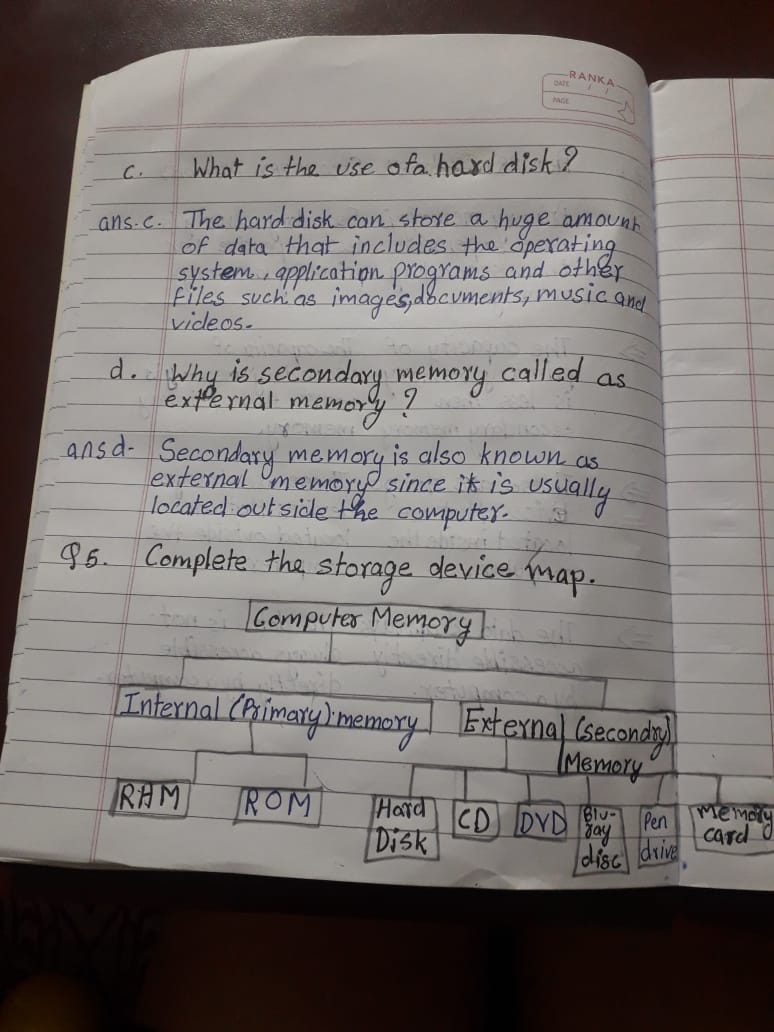 RANKA
DATE / /
PAGE
c. What is the use of a hard disk?
ans.c. The hard disk can store a huge amount
of data that includes the operating
system, application programs and other
files such as images, documents, music and
videos.
d. Why is secondary memory called as
external memory?
ans d- Secondary memory is also known as
external memory since it is usually
located outside the computer.
Q5. Complete the storage device map.
Computer Memory
Internal (Primary) memory External (secondry)
Memory
RAM ROM Hard CD DVD Blu- Pen memory
Disk ray drive card
disc